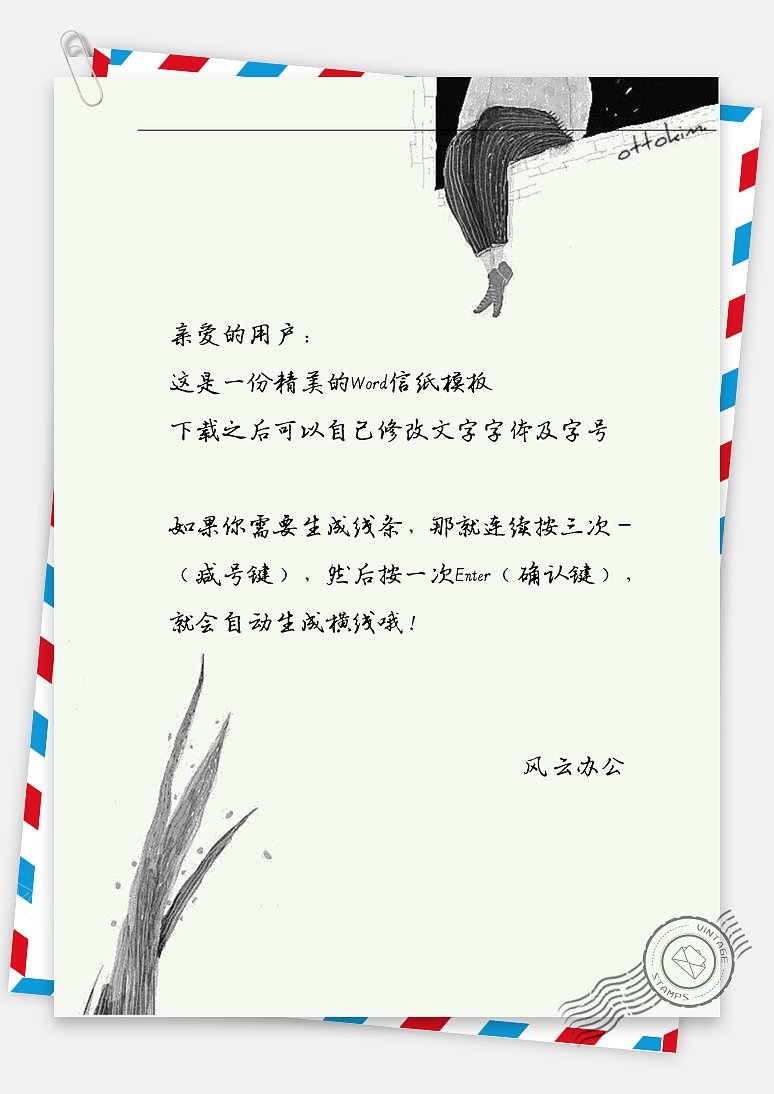 ottokim.
亲爱的用户：
这是一份精美的Word信纸模板
下载之后可以自己修改文字字体及字号
如果你需要生成线条，那就连续按三次－
（减号键），然后按一次Enter（确认键），
就会自动生成横线哦！
风云办公
VINTAGE
STAMPS